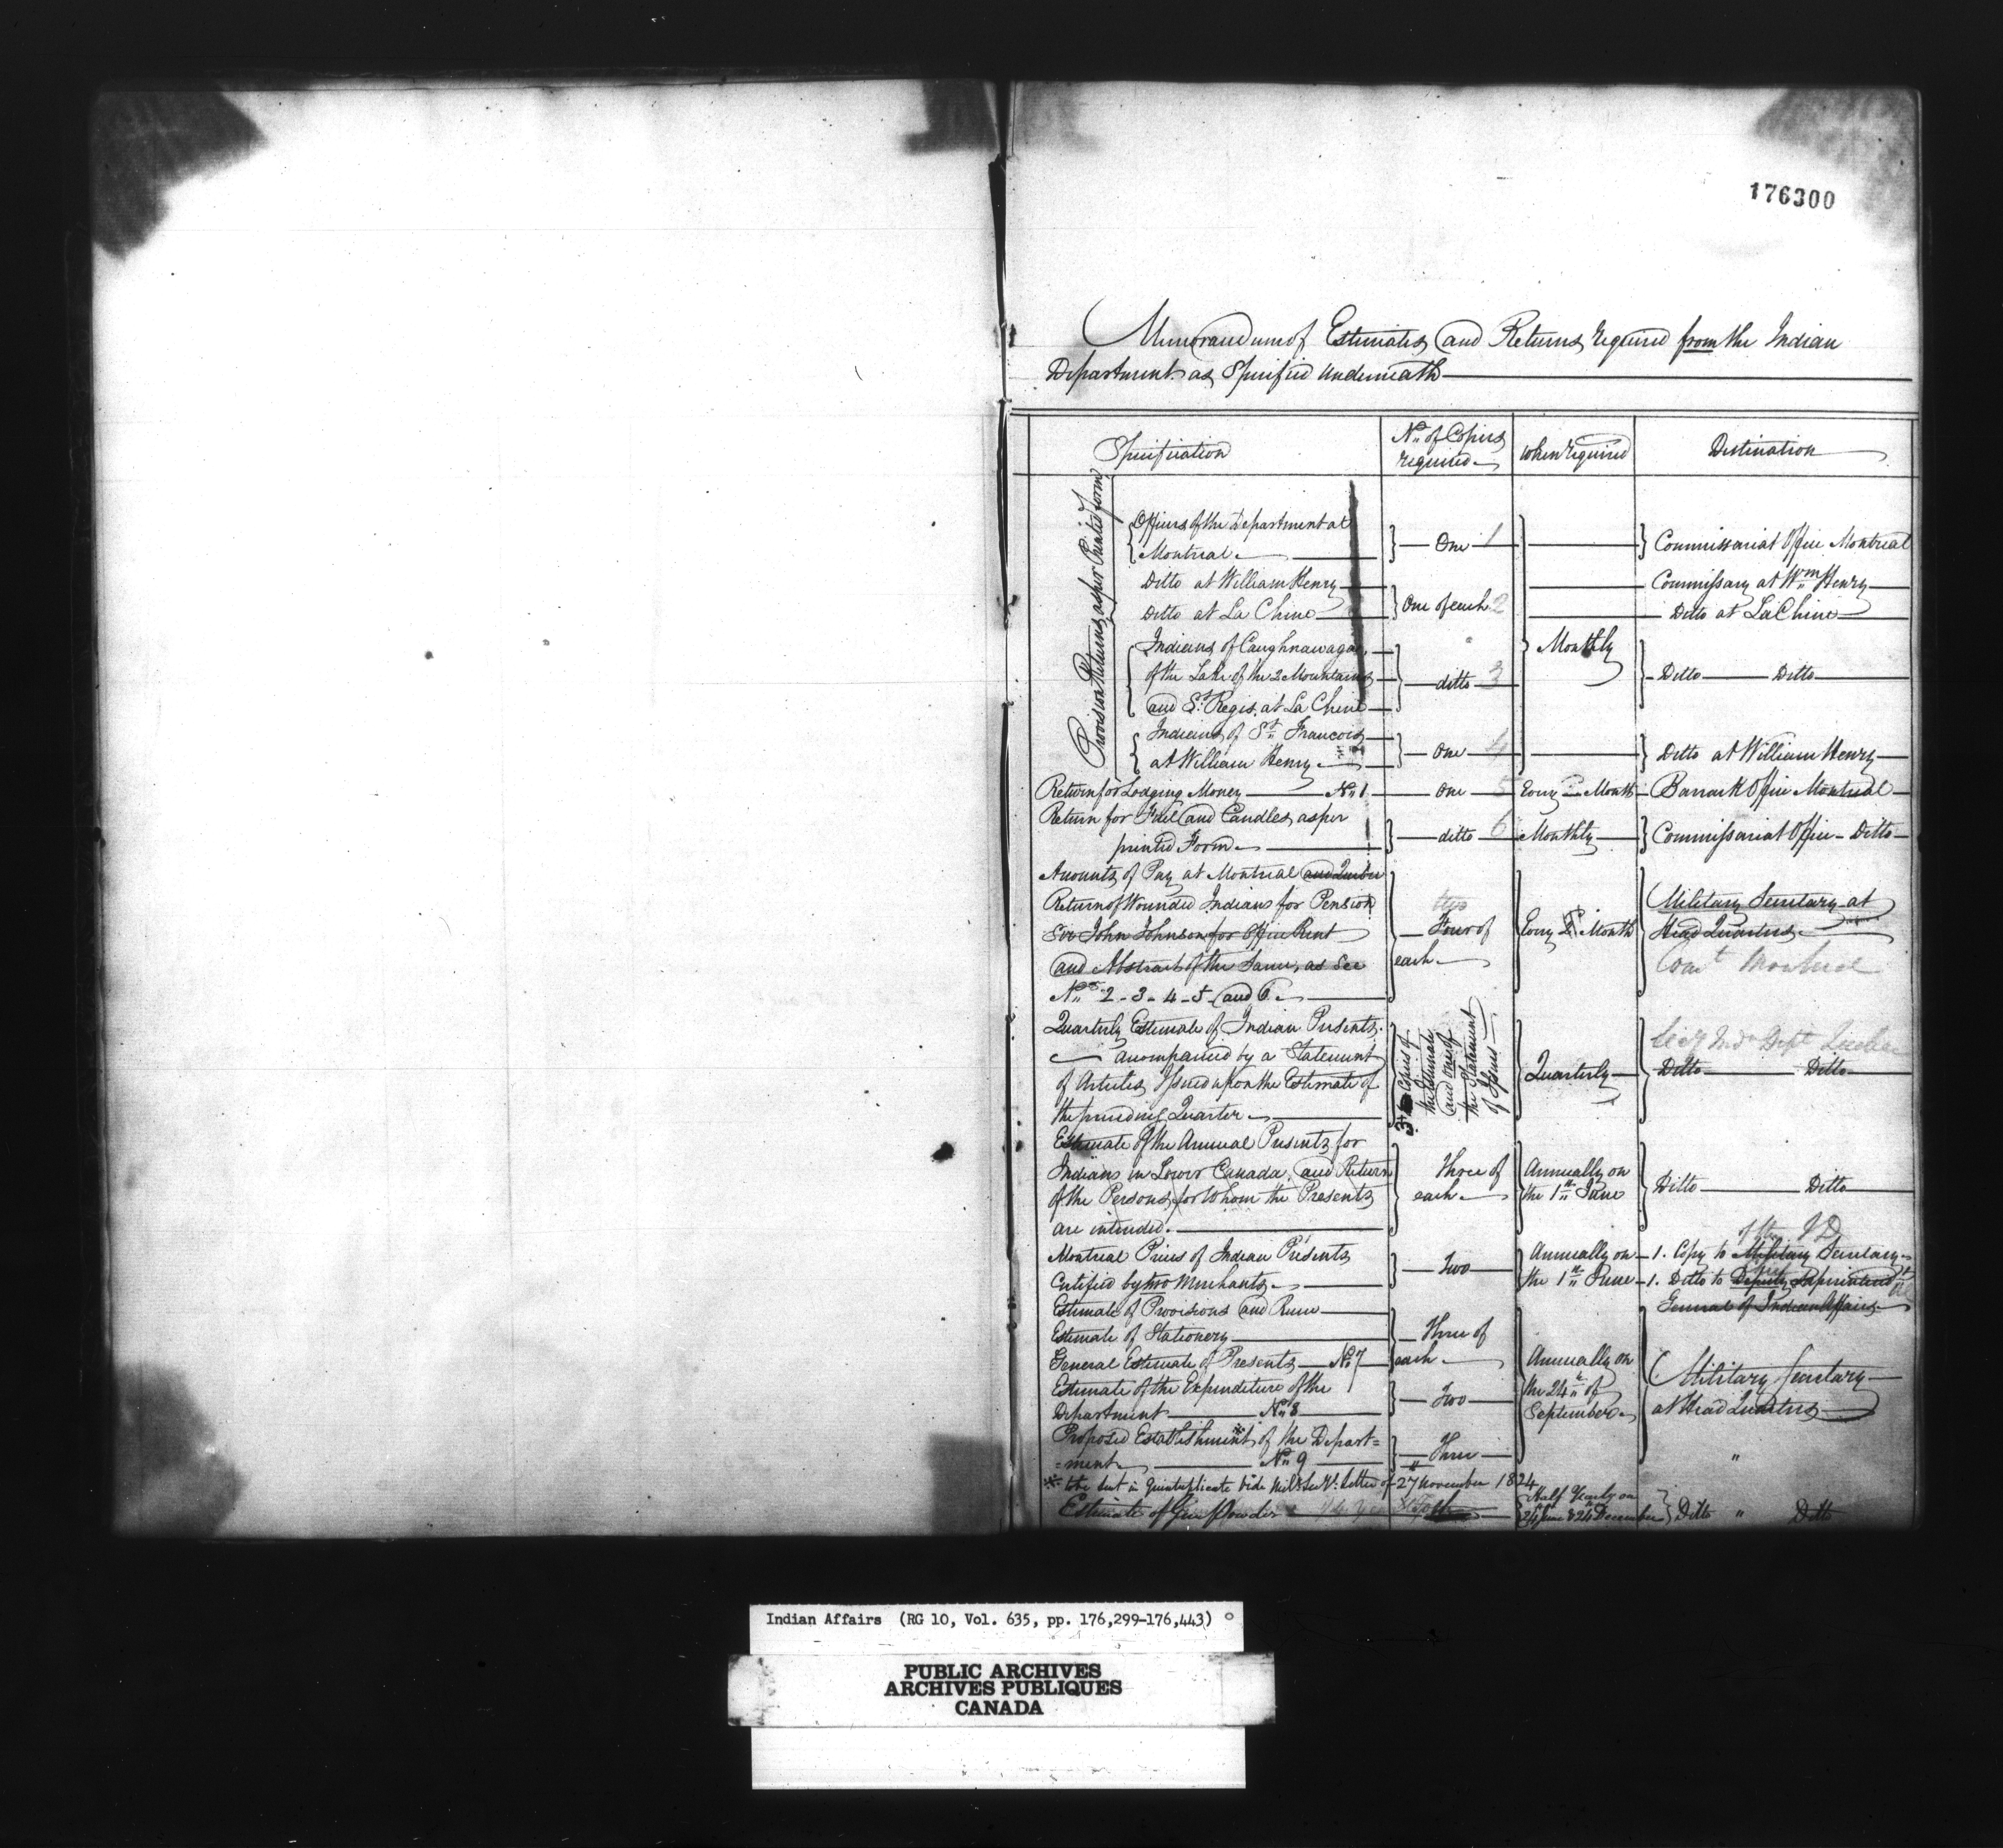 176300
Memorandum of Estimates and Returns required from the Indian
Department as Specified underneath
Specification
No. of Copies
required
when required
Destination
Provision Returns, as per Printed form
Officers of the Department at
Montreal
One 1
Commissariat Office Montreal
Ditto at William Henry
Commissary at Wm. Henry
Ditto at La Chine
One of each 2
Ditto at La Chine
Indians of Caughnawaga,
of the Lake of the 2 Mountains
and St. Regis, at La Chine
ditto 3
Monthly
Ditto Ditto
Indians of St. Francois
at William Henry
One 4
Ditto at William Henry
Return for Lodging Money No. 1
One 5
Every Month
Barrack Office Montreal
Return for Fuel and Candles, as per
printed Form
ditto 6
Monthly
Commissariat Office Ditto
Amounts of Pay at Montreal and Quebec
Return of Wounded Indians for Pension
Sir John Johnson for Office Rent
and Abstract of the Same, as See
Nos. 2 - 3 - 4 - 5 and 6
two
Four of
each
Every Month
Military Secretary at
Head Quarters
Comt Montreal
Quarterly Estimate of Indian Presents,
accompanied by a Statement
of Articles Issued upon the Estimate of
the preceding Quarter
3 Copies of
the Estimate
and one of
the Statement
of Issues
Quarterly
Secy Ind Dept Quebec
Ditto Ditto
Estimate of the Annual Presents for
Indians in Lower Canada, and Return
of the Persons, for Whom the Presents
are intended.
Three of
each
Annually on
the 1st June
Ditto Ditto
Montreal Prices of Indian Presents
Certified by two Merchants
Two
Annually on
the 1st June
1. Copy to Military Secretary
1. Ditto to Deputy Superintend
General of Indian Affairs
Estimate of Provisions and Rum
Estimate of Stationery
General Estimate of Presents No. 7
Three of
each
Annually on
the 24th of
September
Military Secretary
at Head Quarters
Estimate of the Expenditure of the
Department No. 8
Two
Proposed Establishment * of the Depart=
=ment No. 9
Three
* to be sent in Quintuplicate Vide Mil. Secy's. letter of 27 November 1824
Estimate of Gun Powder
Half Yearly on
24 June & 24 December
Ditto " Ditto
Indian Affairs (RG 10, Vol. 635, pp. 176,299-176,443)
PUBLIC ARCHIVES
ARCHIVES PUBLIQUES
CANADA